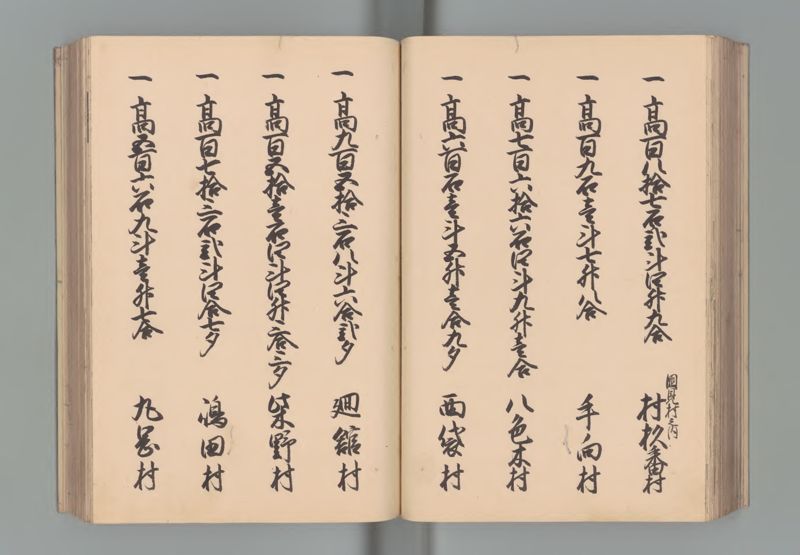 一 高百八拾七石弐斗四升九合
国見村之内
村杉番村
一 高百九石壱斗七升八合
手向村
一 高七百六拾六石四斗九升壱合
八色木村
一 高六百石壱斗五升壱合九夕
西袋村
一 高九百五拾三石八斗六合弐夕
廻舘村
一 高百五拾壱石四斗四升三合三夕
柴野村
一 高百七拾三石弐斗四合七夕
嶋田村
一 高五百六石九斗壱升七合
九岡村